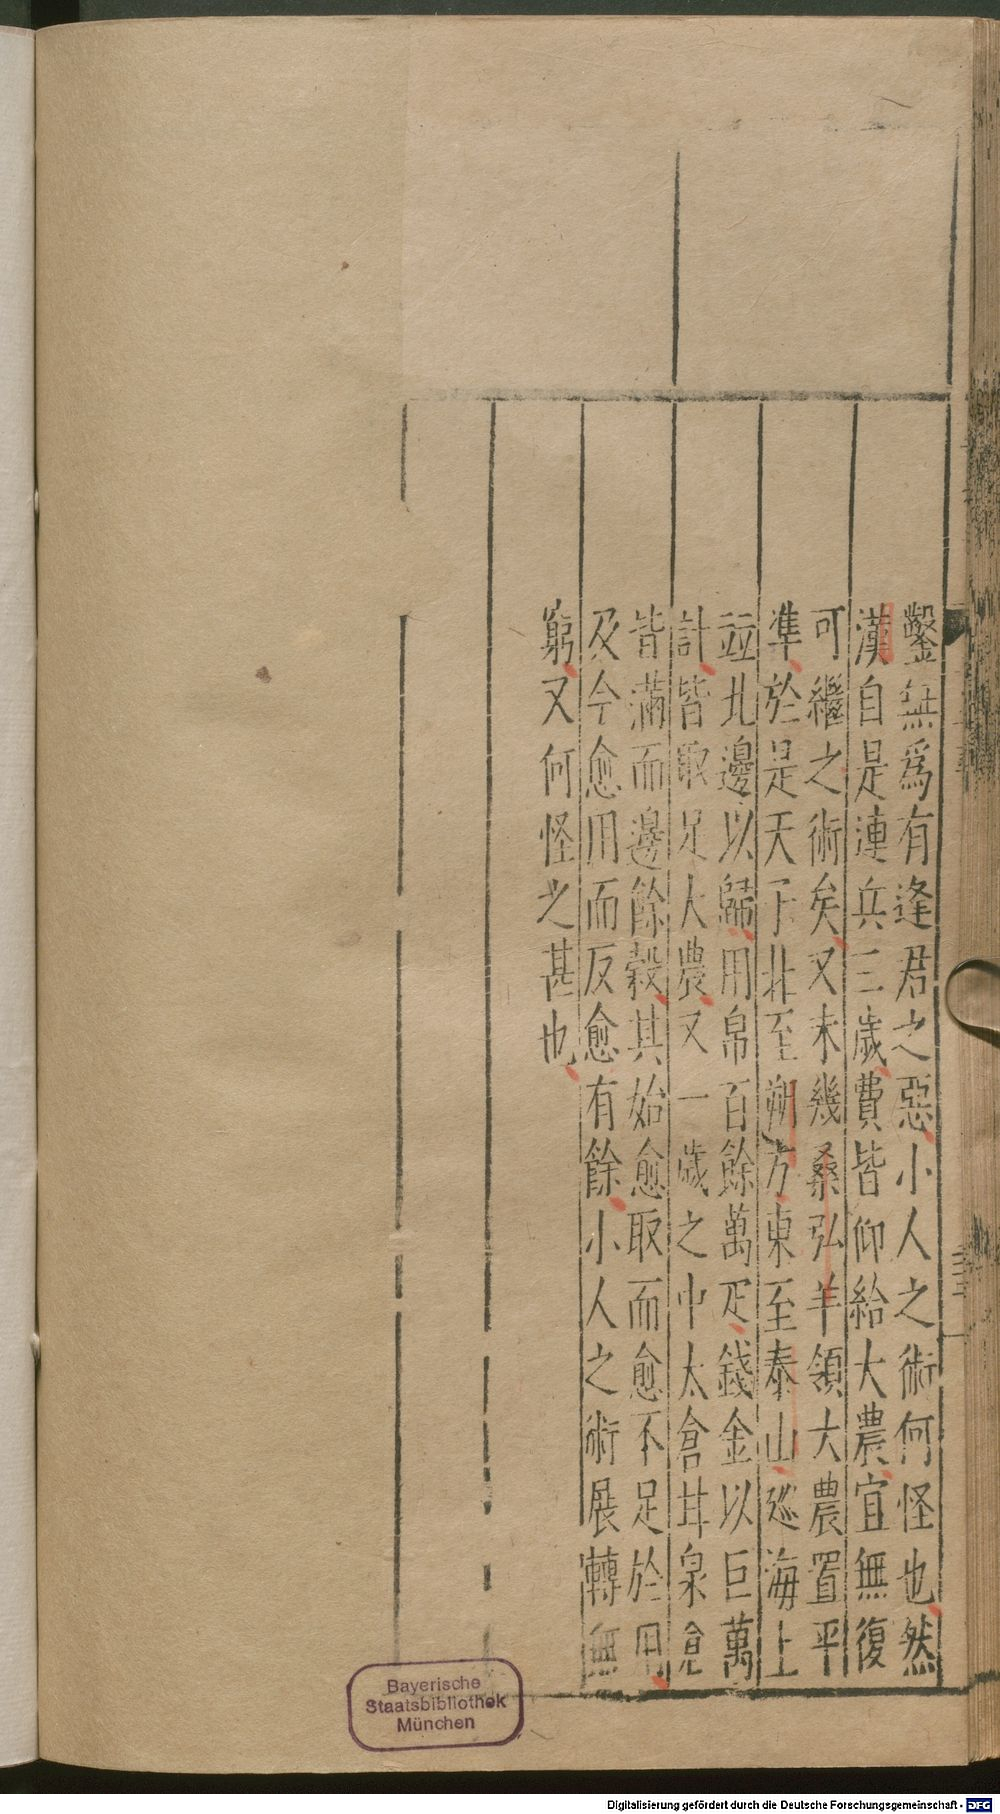 鑿無爲有逢君之惡小人之術何怪也然
漢自是連兵三歲費皆仰給大農宜無復
可繼之術矣又未幾桑弘羊領大農置平
準於是天下北至朔方東至泰山巡海上
竝北邊以歸用帛百餘萬疋錢金以巨萬
計皆取足大農又一歲之中太倉甘泉倉
皆滿而邊餘穀其始愈取而愈不足於用
及今愈用而反愈有餘小人之術展轉無
窮又何怪之甚也
Bayerische
Staatsbibliothek
München
Digitalisierung gefördert durch die Deutsche Forschungsgemeinschaft - DFG